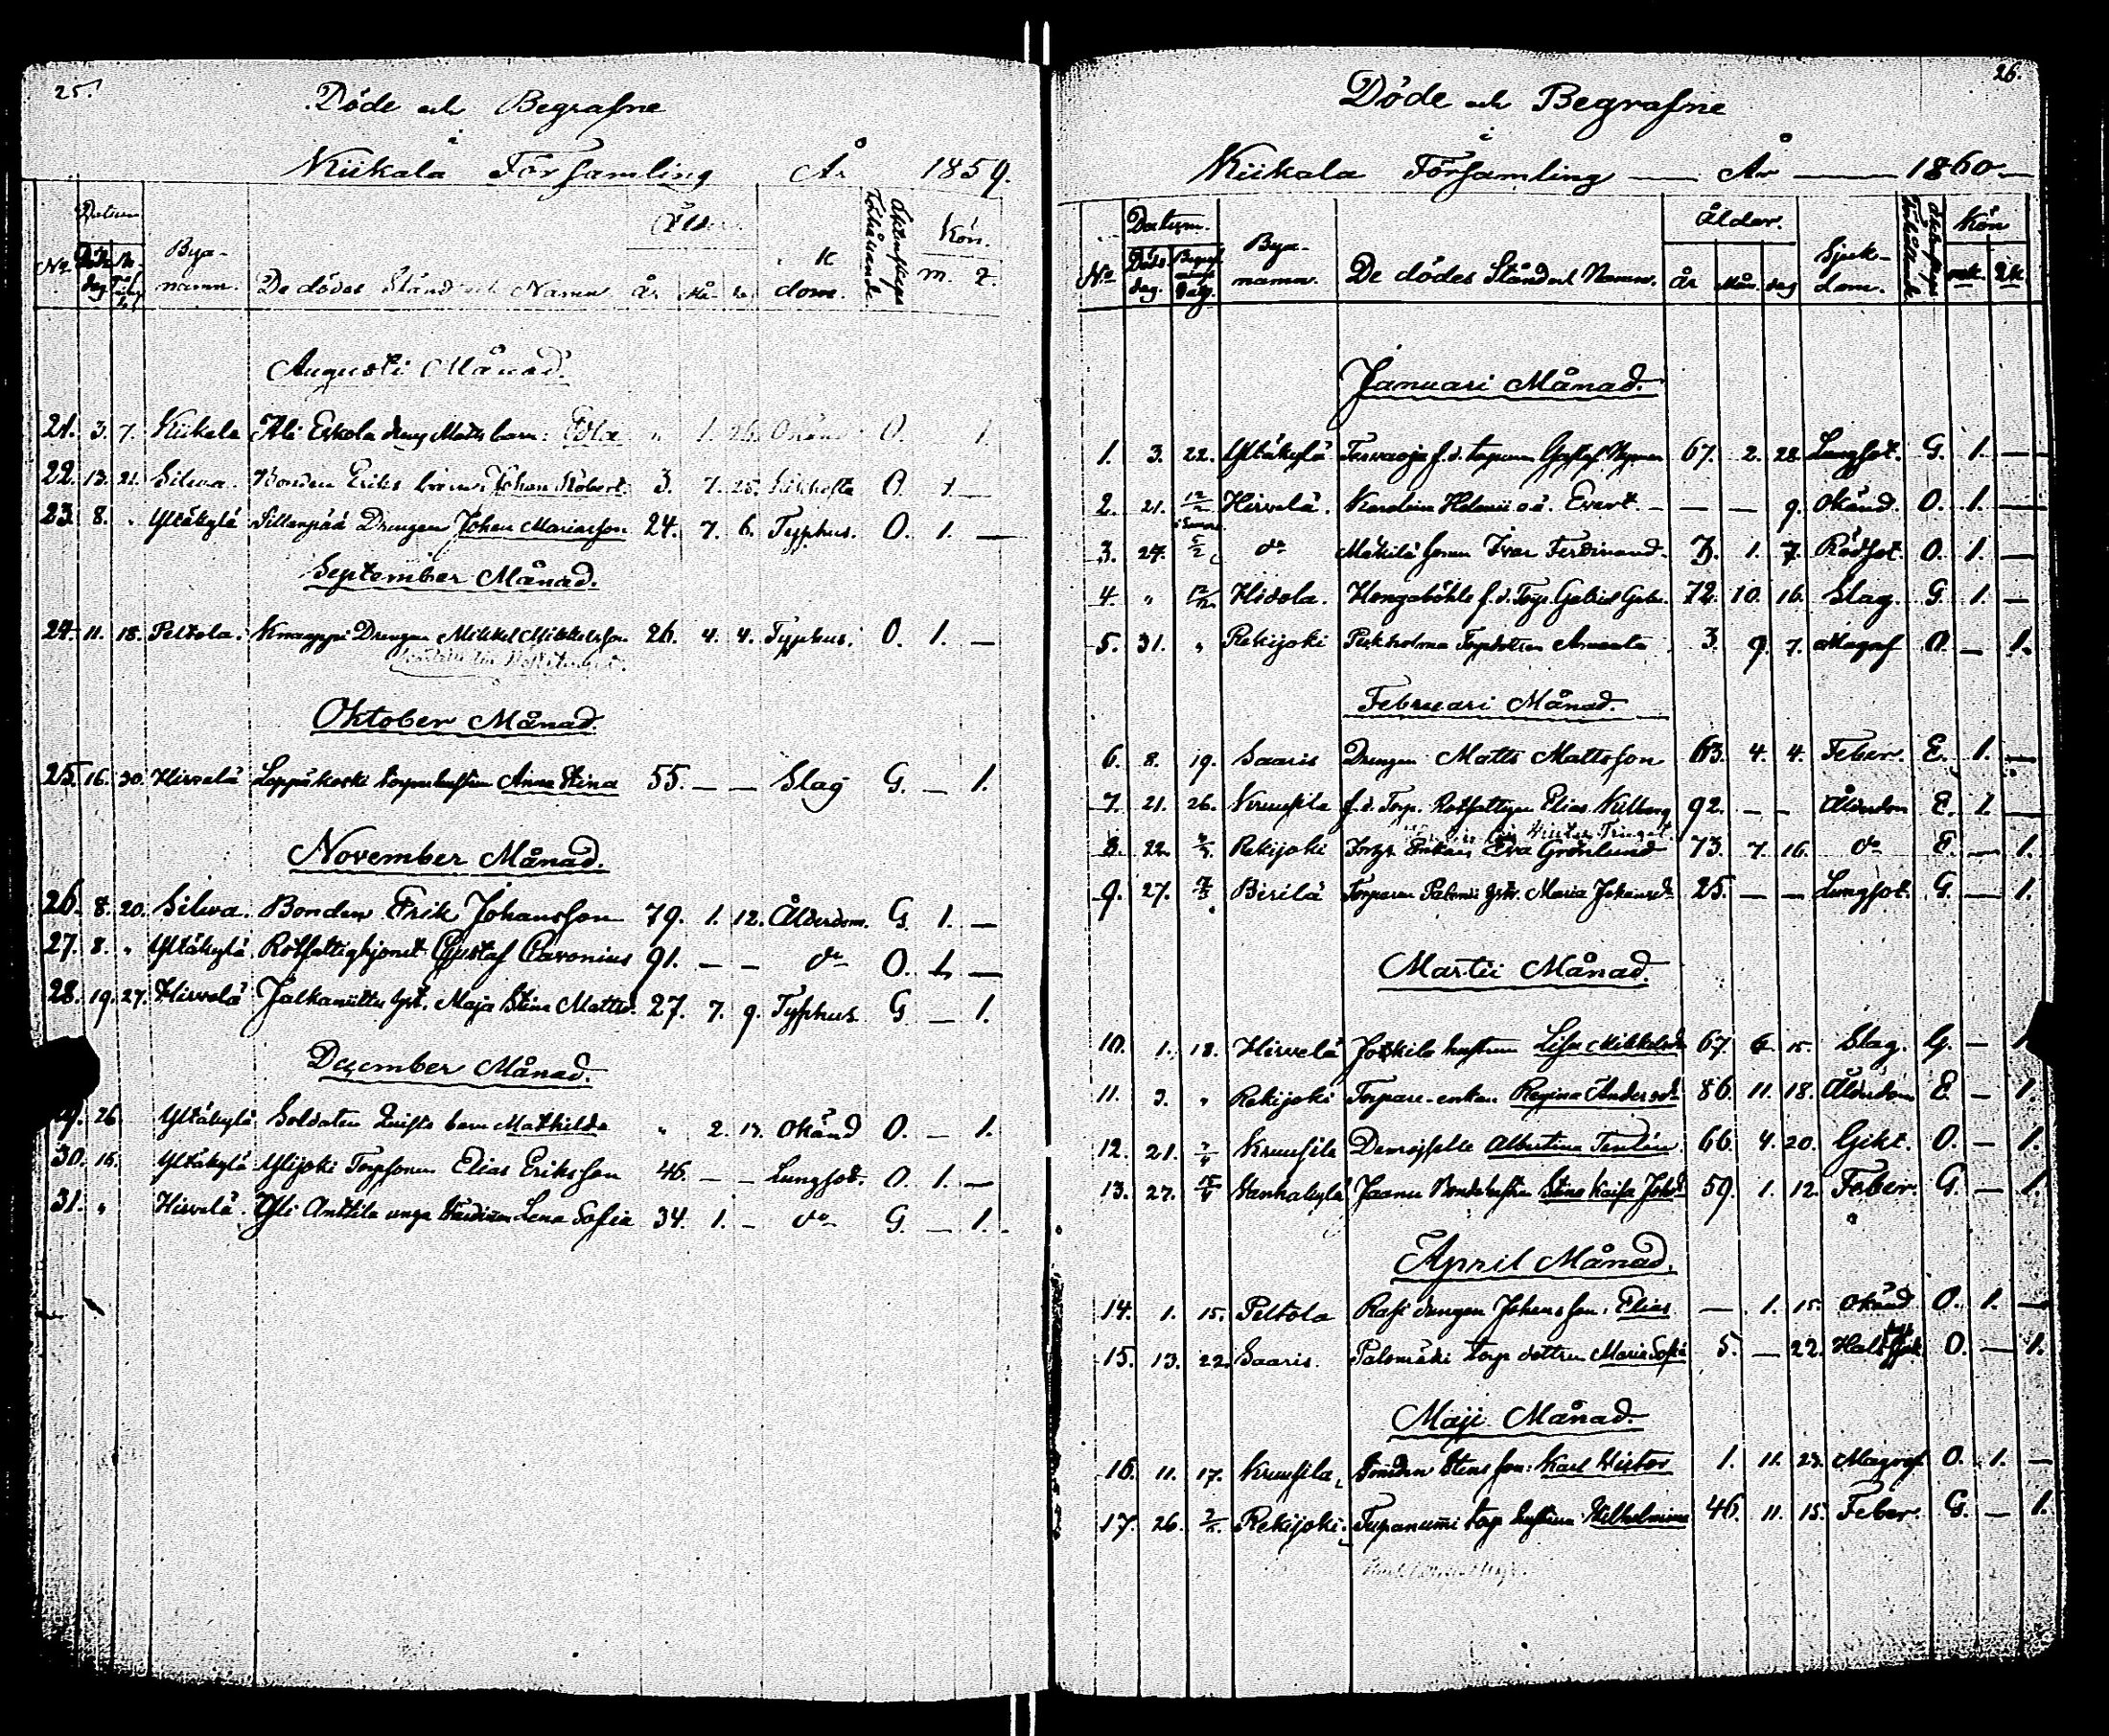 25.
Döde och Begrafne
i
Kiikala Församling År 1859.
No Datum Bya-namn. De dödes Stånd och Namn År Mån dom. Kön. m. q.
Augusti Månad.
21. 3. 7. Kiikala Yli Eskola dreng Matts barn: Edla " 1. 26. Okänd O. 1.
22. 13. 21. Silwa. Bonden Eriks barn: Johan Robert. 3. 7. 25. O. 1 —
23. 8. " Yltäkylä Sillanpää Drengen Johan Mariasson 24. 7. 6. Typhus. O. 1. —
September Månad.
24. 11. 18. Peltola. Knaappi Drengen Mikkel Mikkelsson 26. 4. 4. Typhus. O. 1. —
Oktober Månad.
25. 16. 30. Hirvelä Leppäkoski torpar hustrun Anna Stina 55. — — Slag G. — 1.
November Månad.
26. 8. 20. Silwa. Bonden Erik Johansson 79. 1. 12. Ålderdom. G. 1. —
27. 8. " Yltäkylä Rotfattighjonet Gustaf Cavonius 91. — — do O. 1. —
28. 19. 27. Hirvelä Jalkaniittu hst. Maja Stina Mattsd. 27. 7. 9. Typhus G — 1.
December Månad.
26. Yltäkylä Soldaten barn Mathilda " 2. 17. Okänd O. — 1.
30. 15. Yltäkylä Ylijoki Torpsonen Elias Eriksson 46. — — Lungsot. O. 1. —
31. " Hirvelä. Yli Anttila unga Lena Sofia 34. 1. — do G. — 1.
26.
Döde och Begrafne
i
Kiikala Församling — År — 1860 —
No Datum. Döds dag. Begrafnings dag. Bya-namn. De dödes Stånd och Namn. Ålder. år Mån. dag Sjuk-dom. Kön mk. qk.
Januari Månad.
1. 3. 22. Yltäkylä Tervaoja f.d. torparen Gustaf Nyman 67. 2. 28. Lungsot. G. 1. —
2. 21. 12/2 Hirvelä. Karolina o.ä. Evert. — — — 9. Okänd. O. 1. —
3. 27. 5/2 do Mäkilä sonen Ivar Ferdinand. 3. 1. 7. Rödsot. O. 1. —
4. " 12/2 Hidola. f.d. Torp. Gabriel 72. 10. 16. Slag. G. 1. —
5. 31. " Rekijoki Torpdottren Amanta 3. 9. 7. Magref O. — 1.
Februari Månad.
6. 8. 19. Saaris Drengen Matts Mattsson 63. 4. 4. Feber. E. 1. —
7. 21. 26. Kruusila f.d. Torp. Rotfattigen Elias Kulberg 92. — — Ålderdom E. 1 —
8. 22. Rekijoki Torp. Enkan Eva Grönlund 73. 7. 16. do E. — 1.
9. 27. Pirilä Torparen hstr. Maria Johansd. 25. — — Lungsot. G. — 1.
Martii Månad.
10. 1. 18. Hirvelä hustrun Lisa Mikkelsd. 67. 6. 15. Slag. G. — 1.
11. 3. " Rekijoki Torpare-enkan Regina Andersd. 86. 11. 18. Ålderdom E. — 1.
12. 21. Kruusila Demoiselle Albertina 66. 4. 20. Gikt. O. — 1.
13. 27. 15/4 Hanhakylä Jaanu Bondehustrun Stina Kaisa Johsd. 59. 1. 12. Feber. G. — 1.
April Månad.
14. 1. 15. Peltola Rasi drengen Johans son: Elias — 1. 15. Okänd O. 1. —
15. 13. 22. Saaris. Palomäki torp dottren Maria Sofia 5. — 22. Halssjuk. O. — 1.
Maji Månad.
16. 11. 17. Kruusila Smeden Stens son: Karl Victor 1. 11. 23. Magref O. 1. —
17. 26. Rekijoki torp hustrun Wilhelmina 46. 11. 15. Feber. G. — 1.